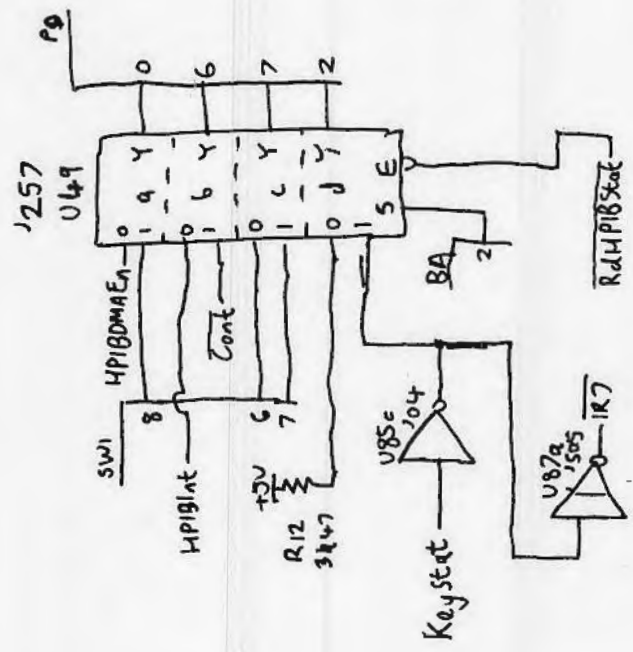 '257
U49
PD
0
6
7
2
0
1
a
Y
0
1
b
Y
0
1
c
Y
0
1
d
Y
S
E
HPIBDMAEn
SW1
8
6
7
HPIBInt
Cont
+5V
R12
3k47
BA
2
RdHPIBStat
U85c
'04
KeyStat
U87a
'S05
IR7